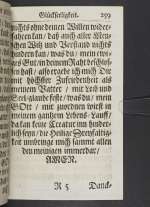 Glückseligkeit. 259
nichts ohne deinen Willen wider-
fahren kan / daß auch aller Men-
schen Witz und Verstand nichts
haben kan / was du / mein
Gott / in deinem Raht beschlos-
sen hast / also ergebe ich mich Dir
mit höchster Zufriedenheit als
meinem Vatter / mit Leib und
Seel / glaube fest / was du / mein
GOtt / mit zuordnen wirst in
meinem gantzen Lebens-Lauff /
da kan keine Creatur im hinder-
lich seyn / die Heilige Dreyfaltig-
keit umbringe mich sammt allen
den meinigen immerdar /
AMEN.
R 5 Danck-